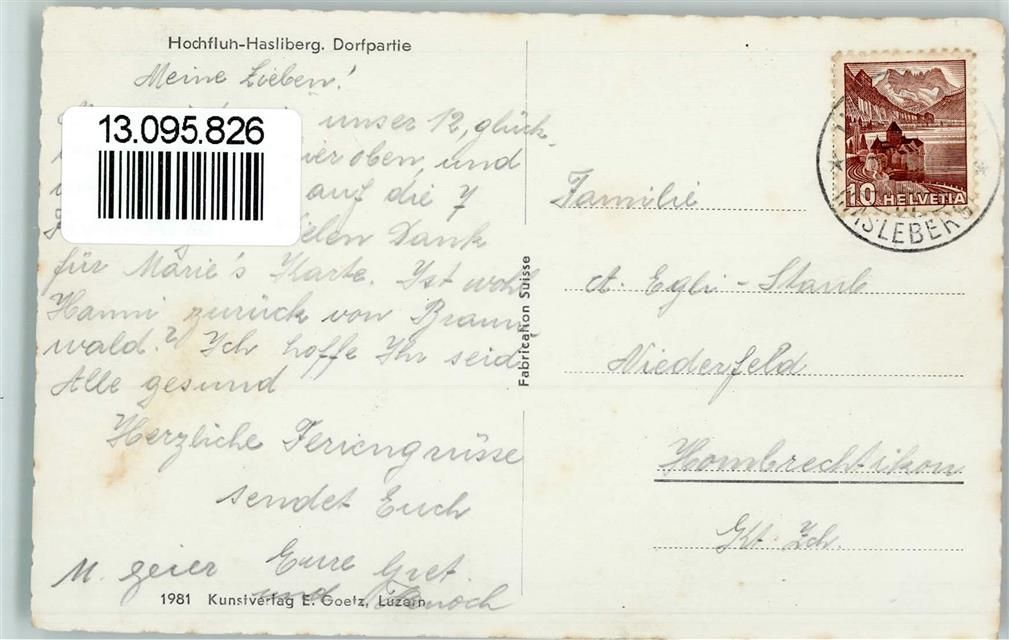 Hochfluh-Hasliberg. Dorfpartie
Meine Lieben!
13.095.826
unser 12, glück-
hier oben, und
auf die 7
vielen Dank
für Marie's Karte. Ist wohl
Hanni zurück von Braun-
wald? Ich hoffe Ihr seid
Alle gesund
Herzliche Feriengrüsse
sendet Euch
Eure Gret.
M. Geier und
1981 Kunstverlag E. Goetz, Luzern
Fabrication Suisse
10 HELVETIA
HASLEBERG
Familie
A. Egli-Staub
Niederfeld
Hombrechtikon
Kt. Zch.